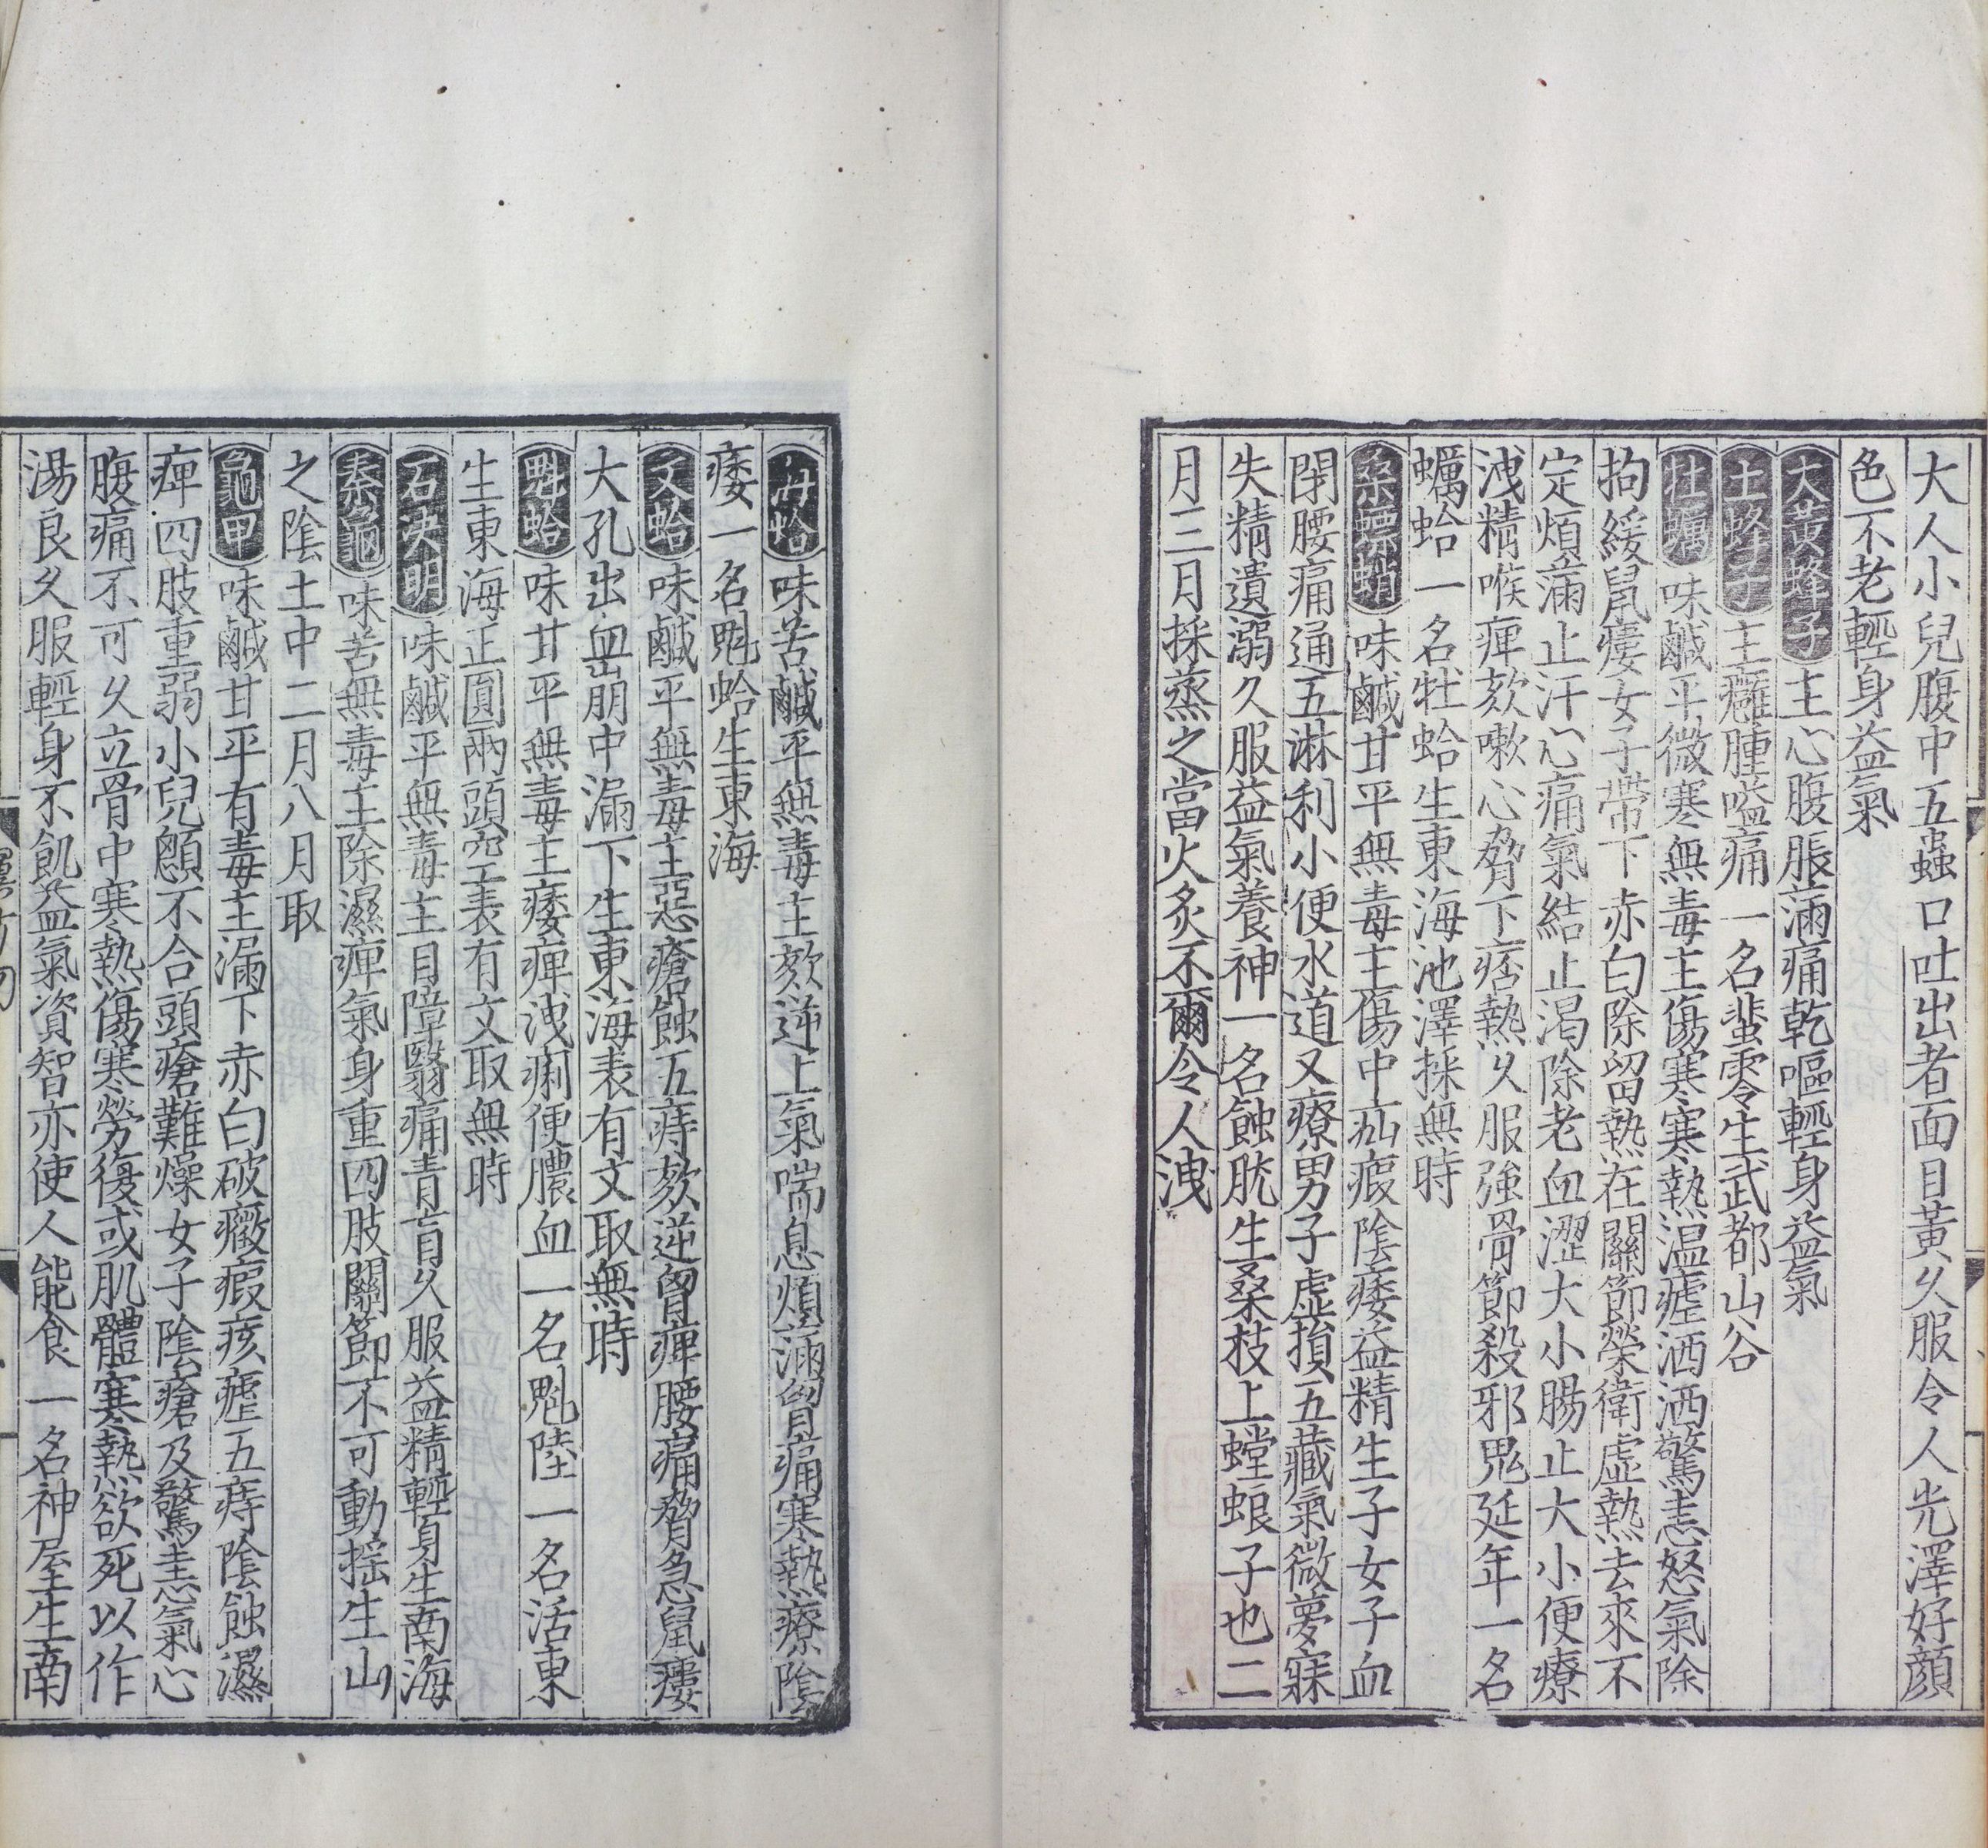 大人小兒腹中五蟲口吐出者面目黃久服令人光澤好顏
色不老輕身益氣
大黃蜂子主心腹脹滿痛乾嘔輕身益氣
土蜂子主癰腫嗌痛一名蜚零生武都山谷
牡蠣味鹹平微寒無毒主傷寒寒熱溫瘧洒洒驚恚怒氣除
拘緩鼠瘻女子帶下赤白除留熱在關節榮衛虛熱去來不
定煩滿止汗心痛氣結止渴除老血澀大小腸止大小便療
洩精喉痺欬嗽心脅下痞熱久服強骨節殺邪鬼延年一名
蠣蛤一名牡蛤生東海池澤採無時
桑螵蛸味鹹甘平無毒主傷中疝瘕陰痿益精生子女子血
閉腰痛通五淋利小便水道又療男子虛損五藏氣微夢寐
失精遺溺久服益氣養神一名蝕肬生桑枝上螳蜋子也二
月三月採蒸之當火炙不爾令人洩
海蛤味苦鹹平無毒主欬逆上氣喘息煩滿胷痛寒熱療陰
痿一名魁蛤生東海
文蛤味鹹平無毒主惡瘡蝕五痔欬逆胷痺腰痛脅急鼠瘻
大孔出血崩中漏下生東海表有文取無時
魁蛤味甘平無毒主痿痺洩痢便膿血一名魁陸一名活東
生東海正圓兩頭空表有文取無時
石決明味鹹平無毒主目障翳痛青盲久服益精輕身生南海
秦龜味苦無毒主除濕痺氣身重四肢關節不可動搖生山
之陰土中二月八月取
龜甲味鹹甘平有毒主漏下赤白破癥瘕痎瘧五痔陰蝕濕
痺四肢重弱小兒顖不合頭瘡難燥女子陰瘡及驚恚氣心
腹痛不可久立骨中寒熱傷寒勞復或肌體寒熱欲死以作
湯良久服輕身不飢益氣資智亦使人能食一名神屋生南